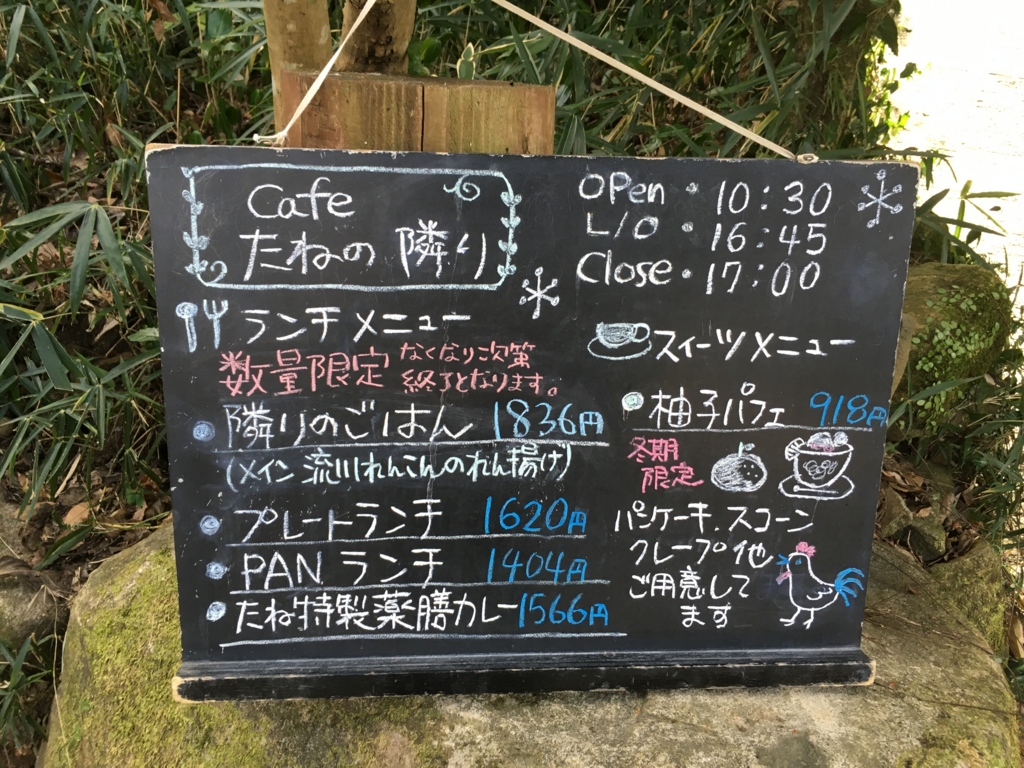 Cafe
たねの隣り
OPen・10:30
L/O・16:45
Close・17:00
ランチメニュー
数量限定 なくなり次第
終了となります。
隣りのごはん 1836円
(メイン 流川れんこんのれん揚げ)
プレートランチ 1620円
PAN ランチ 1404円
たね特製薬膳カレー 1566円
スイーツメニュー
柚子パフェ 918円
冬期
限定
パンケーキ.スコーン
クレープ他
ご用意して
ます